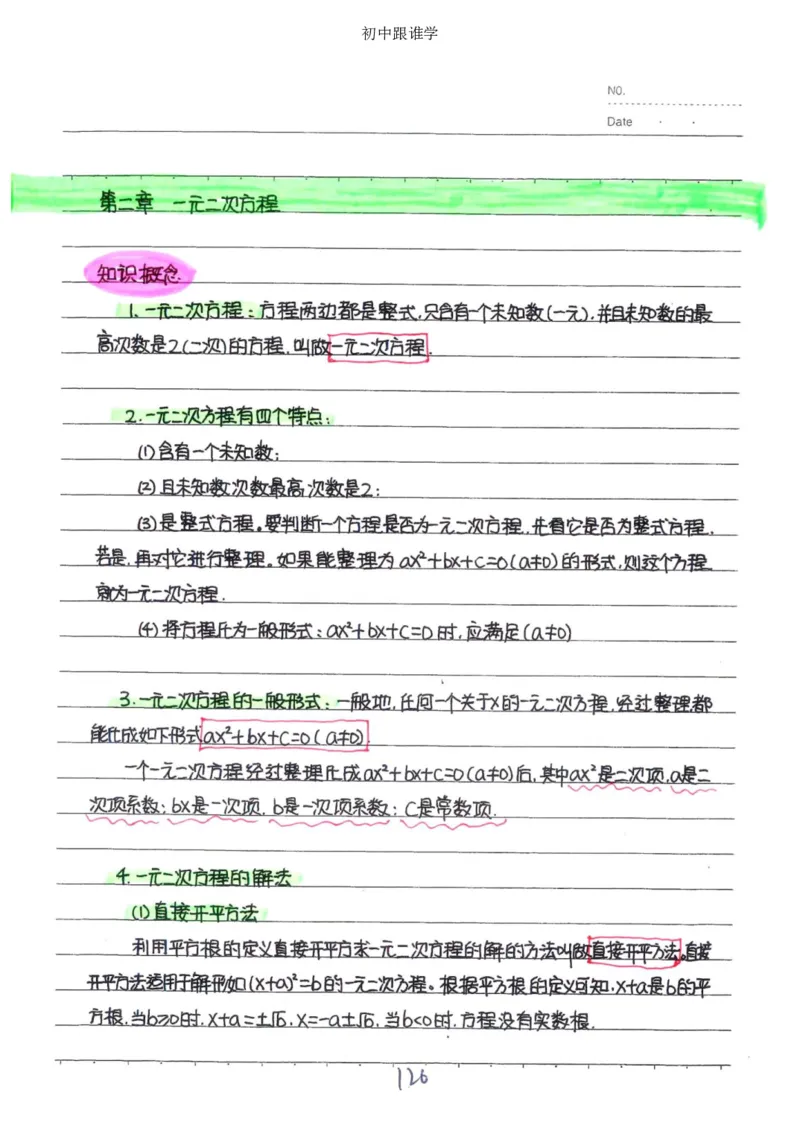 初中跟谁学
NO.
Date
第二章 一元二次方程
知识概念
1.一元二次方程:方程两边都是整式,只含有一个未知数(一元),并且未知数的最
高次数是2(二次)的方程,叫做一元二次方程.
2.一元二次方程有四个特点:
(1)含有一个未知数;
(2)且未知数次数最高次数是2;
(3)是整式方程。要判断一个方程是否为一元二次方程,先看它是否为整式方程,
若是,再对它进行整理。如果能整理为ax²+bx+c=0(a≠0)的形式,则这个方程
就为一元二次方程.
(4)将方程化为一般形式:ax²+bx+c=0时,应满足(a≠0)
3.一元二次方程的一般形式:一般地,任何一个关于x的一元二次方程,经过整理,都
能化成如下形式ax²+bx+c=0(a≠0).
一个一元二次方程经过整理化成ax²+bx+c=0(a≠0)后,其中ax²是二次项,a是二
次项系数;bx是一次项,b是一次项系数;c是常数项.
4.一元二次方程的解法
(1)直接开平方法
利用平方根的定义直接开平方求一元二次方程的解的方法叫做直接开平方法。直接
开平方法适用于解形如(x+a)²=b的一元二次方程。根据平方根的定义可知,x+a是b的平
方根,当b≥0时,x+a=±√b,x=-a±√b,当b<0时,方程没有实数根.
126